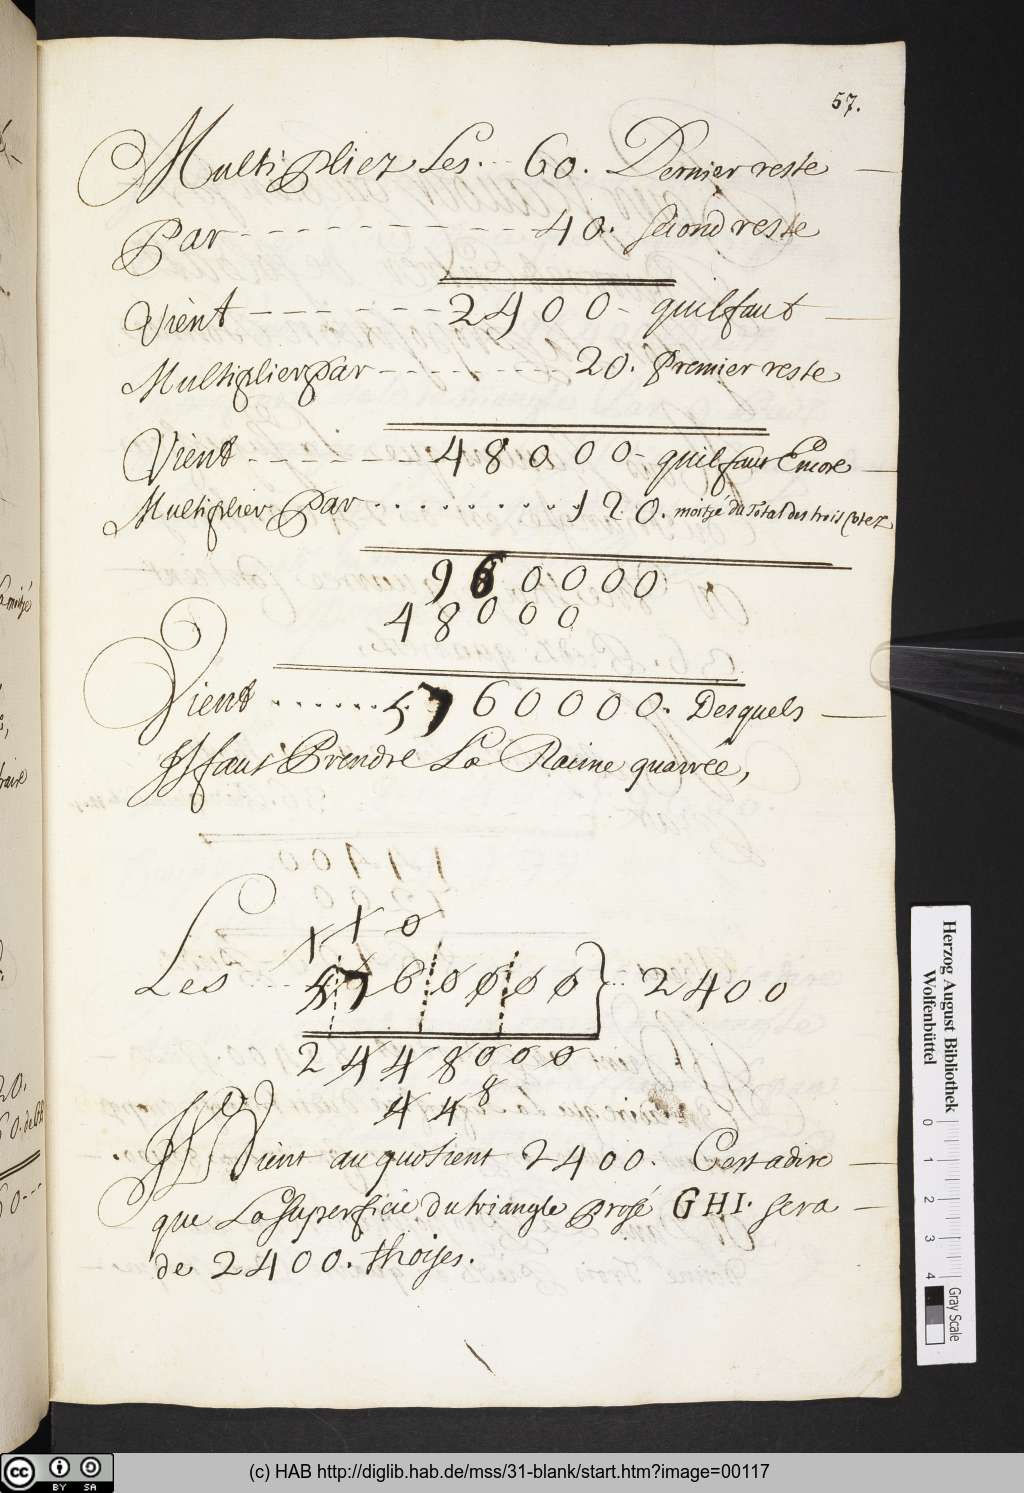 57.
Multipliez Les. 60. Dernier reste
Par 40. second reste
Vient 2400 - quil faut
Multiplier par 20. Premier reste
Vient 48000 - quil faut Encore
Multiplier Par 120. moitjé du Total des trois Cotez
960000
48000
Vient 5760000. Desquels
Il faut Prendre La Racine quarrée,
1 1 0
Les 5760000 } 2400
2448000
448
Il Vient au quotient 2400. C'est a dire
que La superficie du triangle Prosé GHI. sera
de 2400. thoises.
Herzog August Bibliothek
Wolfenbüttel
0 1 2 3 4
Gray Scale
cc BY SA
(c) HAB http://diglib.hab.de/mss/31-blank/start.htm?image=00117